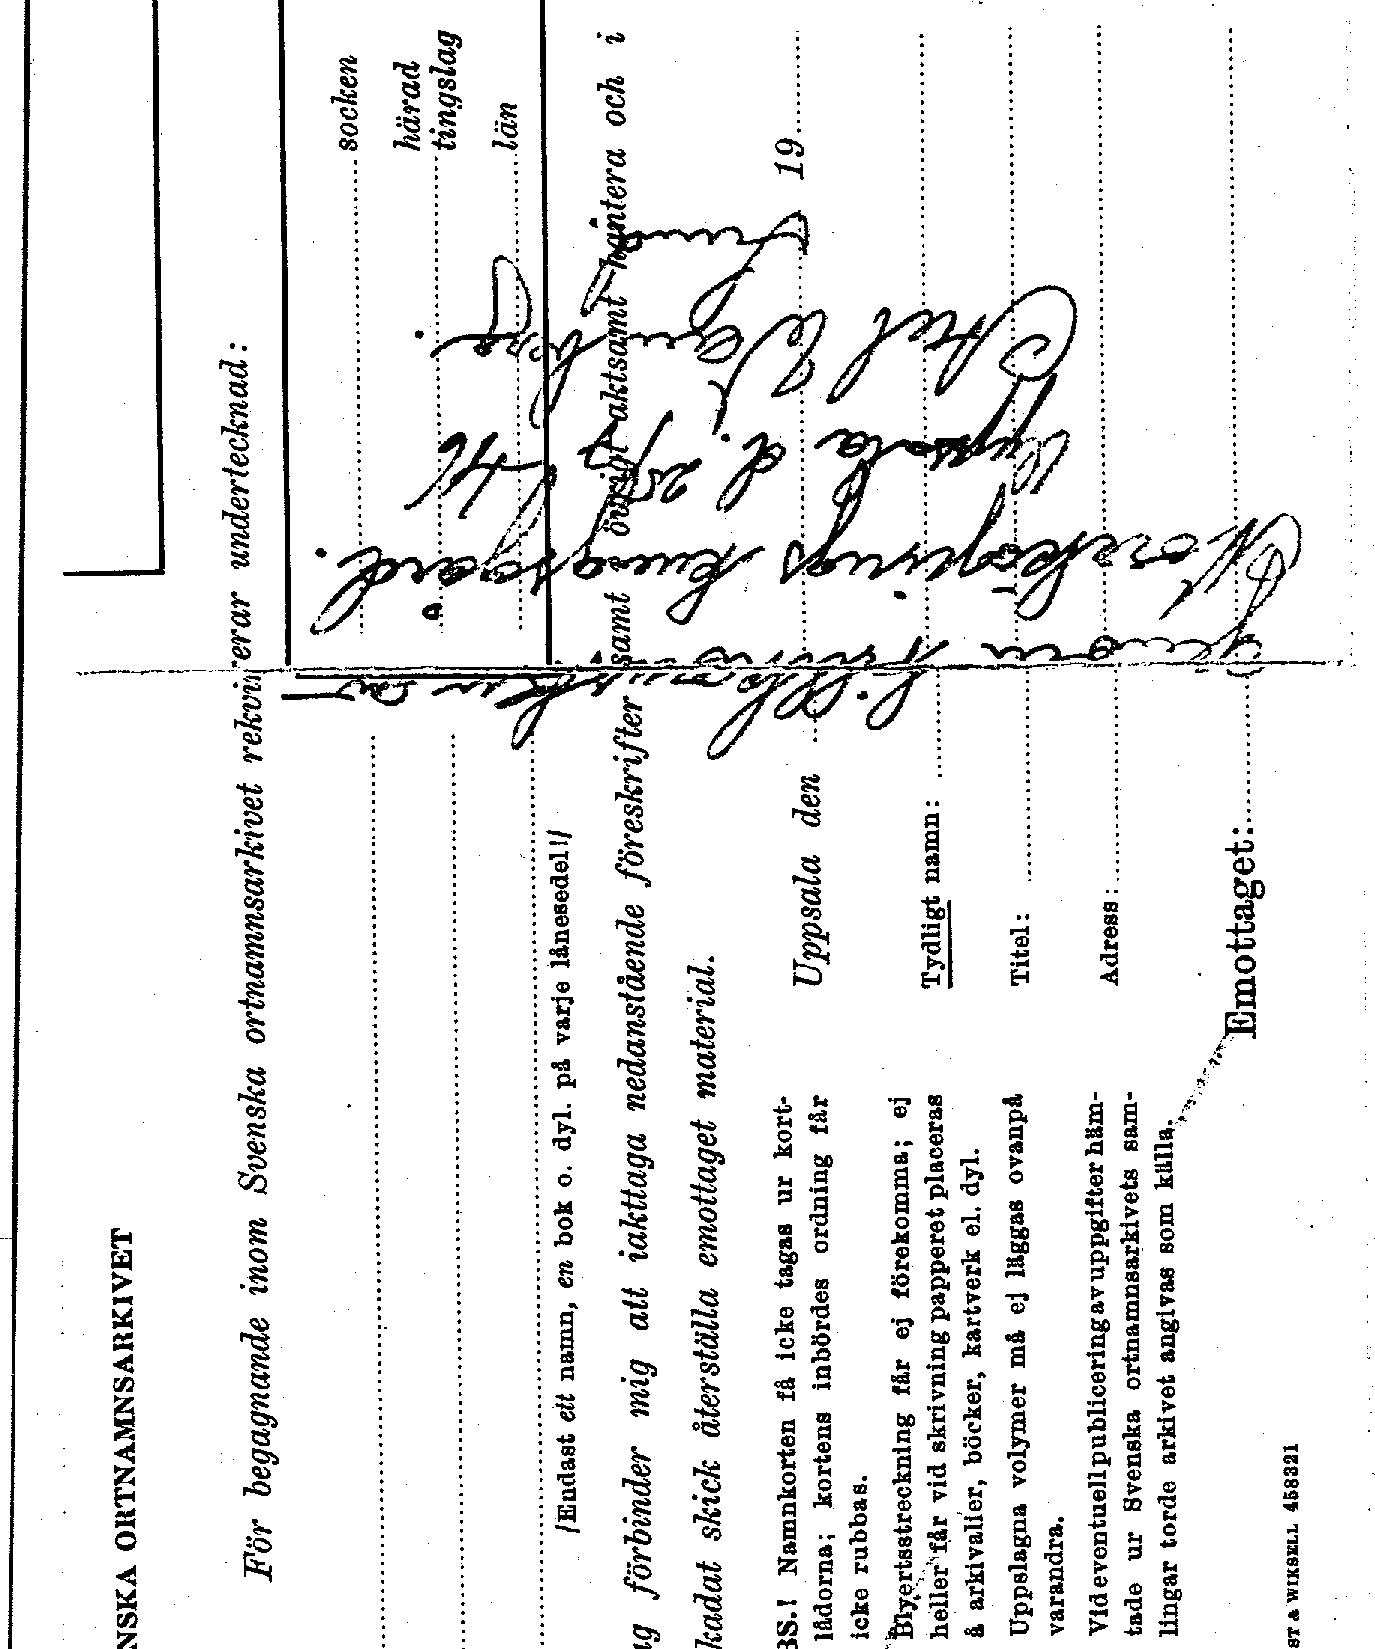 NSKA ORTNAMNSARKIVET
För begagnande inom Svenska ortnamnsarkivet rekvirerar undertecknad:
socken
härad
tingslag
län
/Endast ett namn, en bok o. dyl. på varje lånesedel!/
ag förbinder mig att iakttaga nedanstående föreskrifter samt övrigt aktsamt hantera och i
kadat skick återställa emottaget material.
Uppsala den 19
BS.! Namnkorten få icke tagas ur kort-
lådorna; kortens inbördes ordning får
icke rubbas.
Blyertsstreckning får ej förekomma; ej
heller får vid skrivning papperet placeras
å arkivalier, böcker, kartverk el. dyl.
Uppslagna volymer må ej läggas ovanpå
varandra.
Vid eventuell publicering av uppgifter häm-
tade ur Svenska ortnamnsarkivets sam-
lingar torde arkivet angivas som källa.
Tydligt namn:
Titel:
Adress:
Emottaget:
ST & WIKSELL 458321
genom
Norrköpings kungsgård.
Uppsala d. 25/7 46
Axel